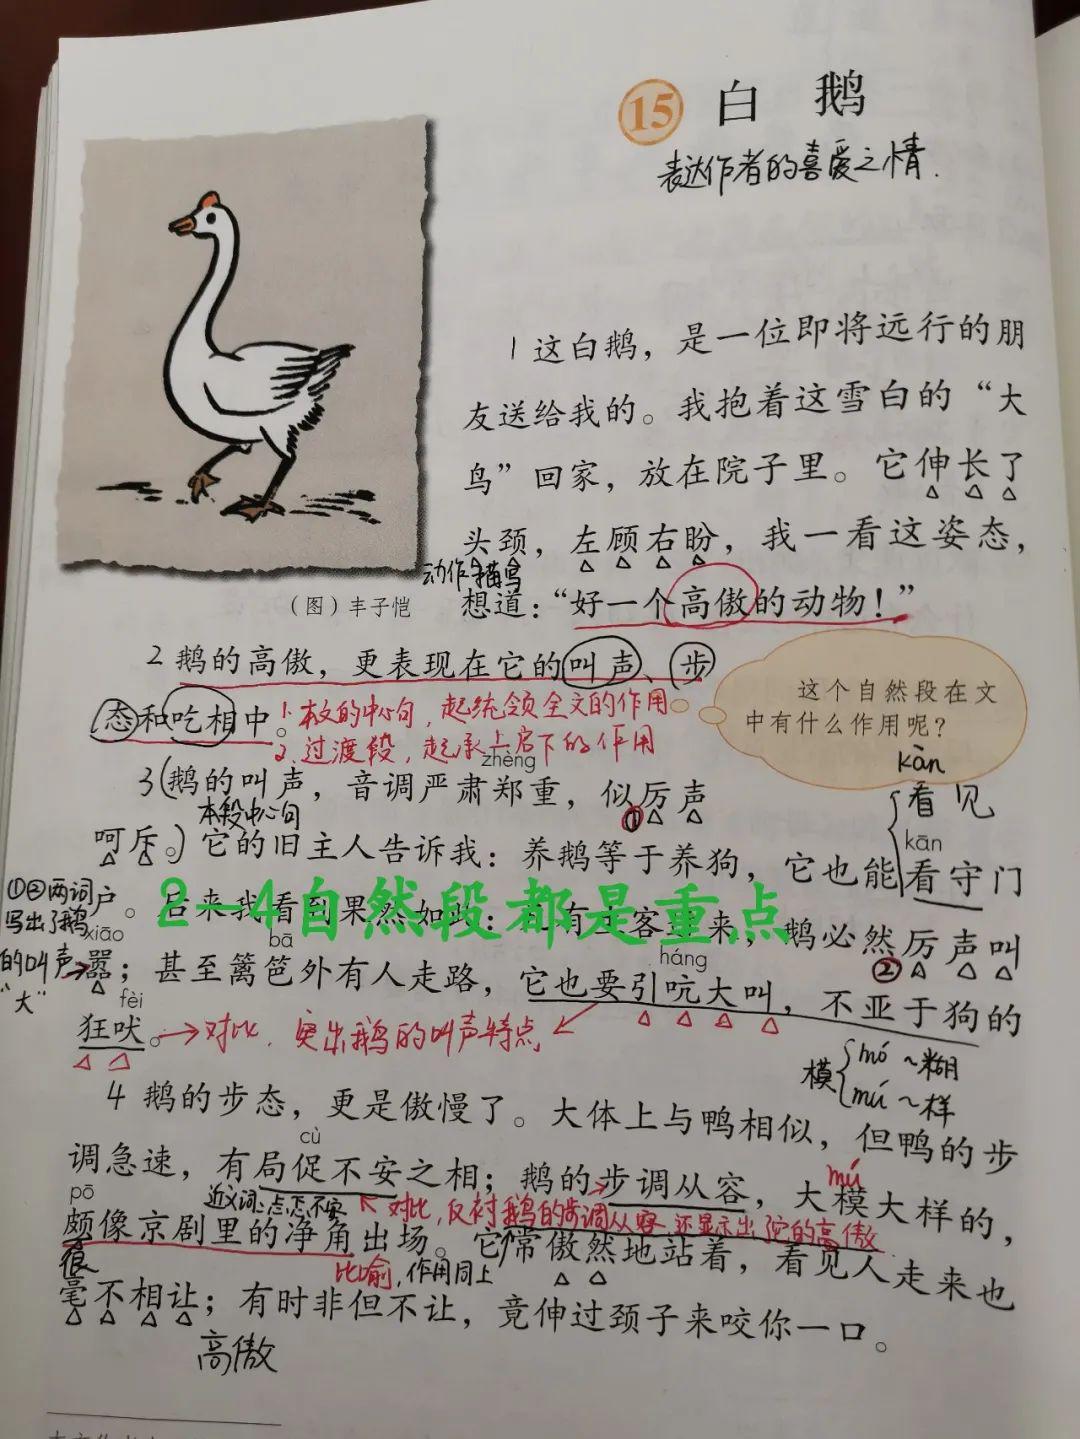 15 白鹅
表达作者的喜爱之情.
1 这白鹅，是一位即将远行的朋
友送给我的。我抱着这雪白的“大
鸟”回家，放在院子里。它伸长了
头颈，左顾右盼，我一看这姿态，
动作描写
(图) 丰子恺
想道：“好一个高傲的动物！”
2 鹅的高傲，更表现在它的叫声、步
态和吃相中。
1. 本文的中心句，起统领全文的作用
2. 过渡段，起承上启下的作用
这个自然段在文
中有什么作用呢？
zhèng
3 (鹅的叫声，音调严肃郑重，似厉声
①
本段中心句
呵斥。) 它的旧主人告诉我：养鹅等于养狗，它也能看守门
kàn
看见
kān
户。后来我看到果然如此：有客进来，鹅必然厉声叫
2—4自然段都是重点
①②两词
写出了鹅
的叫声
“大”
②
xiāo bā háng
嚣；甚至篱笆外有人走路，它也要引吭大叫，不亚于狗的
fèi
狂吠。→对比，突出鹅的叫声特点
模 mó ~糊
mú ~样
4 鹅的步态，更是傲慢了。大体上与鸭相似，但鸭的步
cù
调急速，有局促不安之相；鹅的步调从容，大模大样的，
mú
近义词：忐忑不安
对比，反衬鹅的步调从容 还显示出它的高傲
pō
颇像京剧里的净角出场。它常傲然地站着，看见人走来也
很
比喻，作用同上
毫不相让；有时非但不让，竟伸过颈子来咬你一口。
高傲